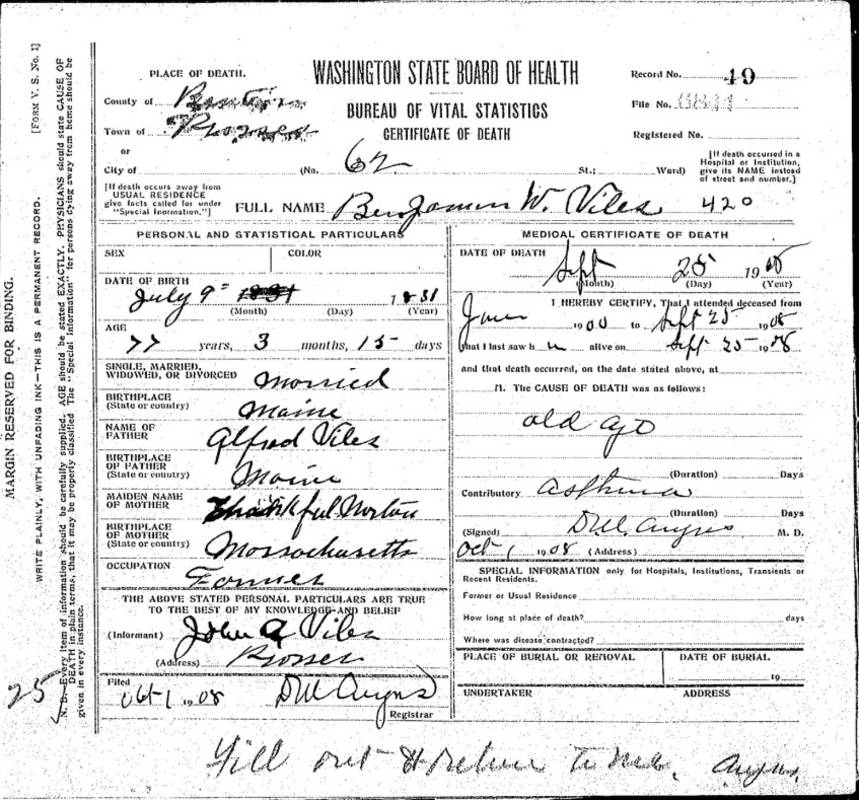 WASHINGTON STATE BOARD OF HEALTH
BUREAU OF VITAL STATISTICS
CERTIFICATE OF DEATH
PLACE OF DEATH.
County of Benton
Town of Prosser
or
City of (No. 62 St.; Ward)
Record No. 49
File No.
Registered No.
[If death occurred in a Hospital or Institution, give its NAME instead of street and number.]
[If death occurs away from USUAL RESIDENCE give facts called for under "Special Information."]
FULL NAME Benjamin W. Viles 420
PERSONAL AND STATISTICAL PARTICULARS
SEX COLOR
DATE OF BIRTH
July 9" 1831
(Month) (Day) (Year)
AGE
77 years, 3 months, 15 days
SINGLE, MARRIED, WIDOWED, OR DIVORCED Married
BIRTHPLACE (State or country) Maine
NAME OF FATHER Alfred Viles
BIRTHPLACE OF FATHER (State or country) Maine
MAIDEN NAME OF MOTHER Thankful Norton
BIRTHPLACE OF MOTHER (State or country) Massachusetts
OCCUPATION Farmer
THE ABOVE STATED PERSONAL PARTICULARS ARE TRUE TO THE BEST OF MY KNOWLEDGE AND BELIEF
(Informant) John A Viles
(Address) Prosser
Filed Oct 1 1908
Registrar
MEDICAL CERTIFICATE OF DEATH
DATE OF DEATH
Sept 25 1908
(Month) (Day) (Year)
I HEREBY CERTIFY, That I attended deceased from
1900 to Sept 25 1908
that I last saw h alive on Sept 25 1908
and that death occurred, on the date stated above, at
M. The CAUSE OF DEATH was as follows:
old age
(Duration) Days
Contributory Asthma
(Duration) Days
(Signed) M. D.
Oct 1 1908 (Address)
SPECIAL INFORMATION only for Hospitals, Institutions, Transients or Recent Residents.
Former or Usual Residence
How long at place of death? days
Where was disease contracted?
PLACE OF BURIAL OR REMOVAL DATE OF BURIAL
19
UNDERTAKER ADDRESS
Fill out & return to me.
MARGIN RESERVED FOR BINDING.
WRITE PLAINLY, WITH UNFADING INK—THIS IS A PERMANENT RECORD. [FORM V. S. No. 1]
N. B.—Every item of information should be carefully supplied. AGE should be stated EXACTLY. PHYSICIANS should state CAUSE OF
DEATH in plain terms, that it may be properly classified. The "Special Information" for persons dying away from home should be
given in every instance.
25